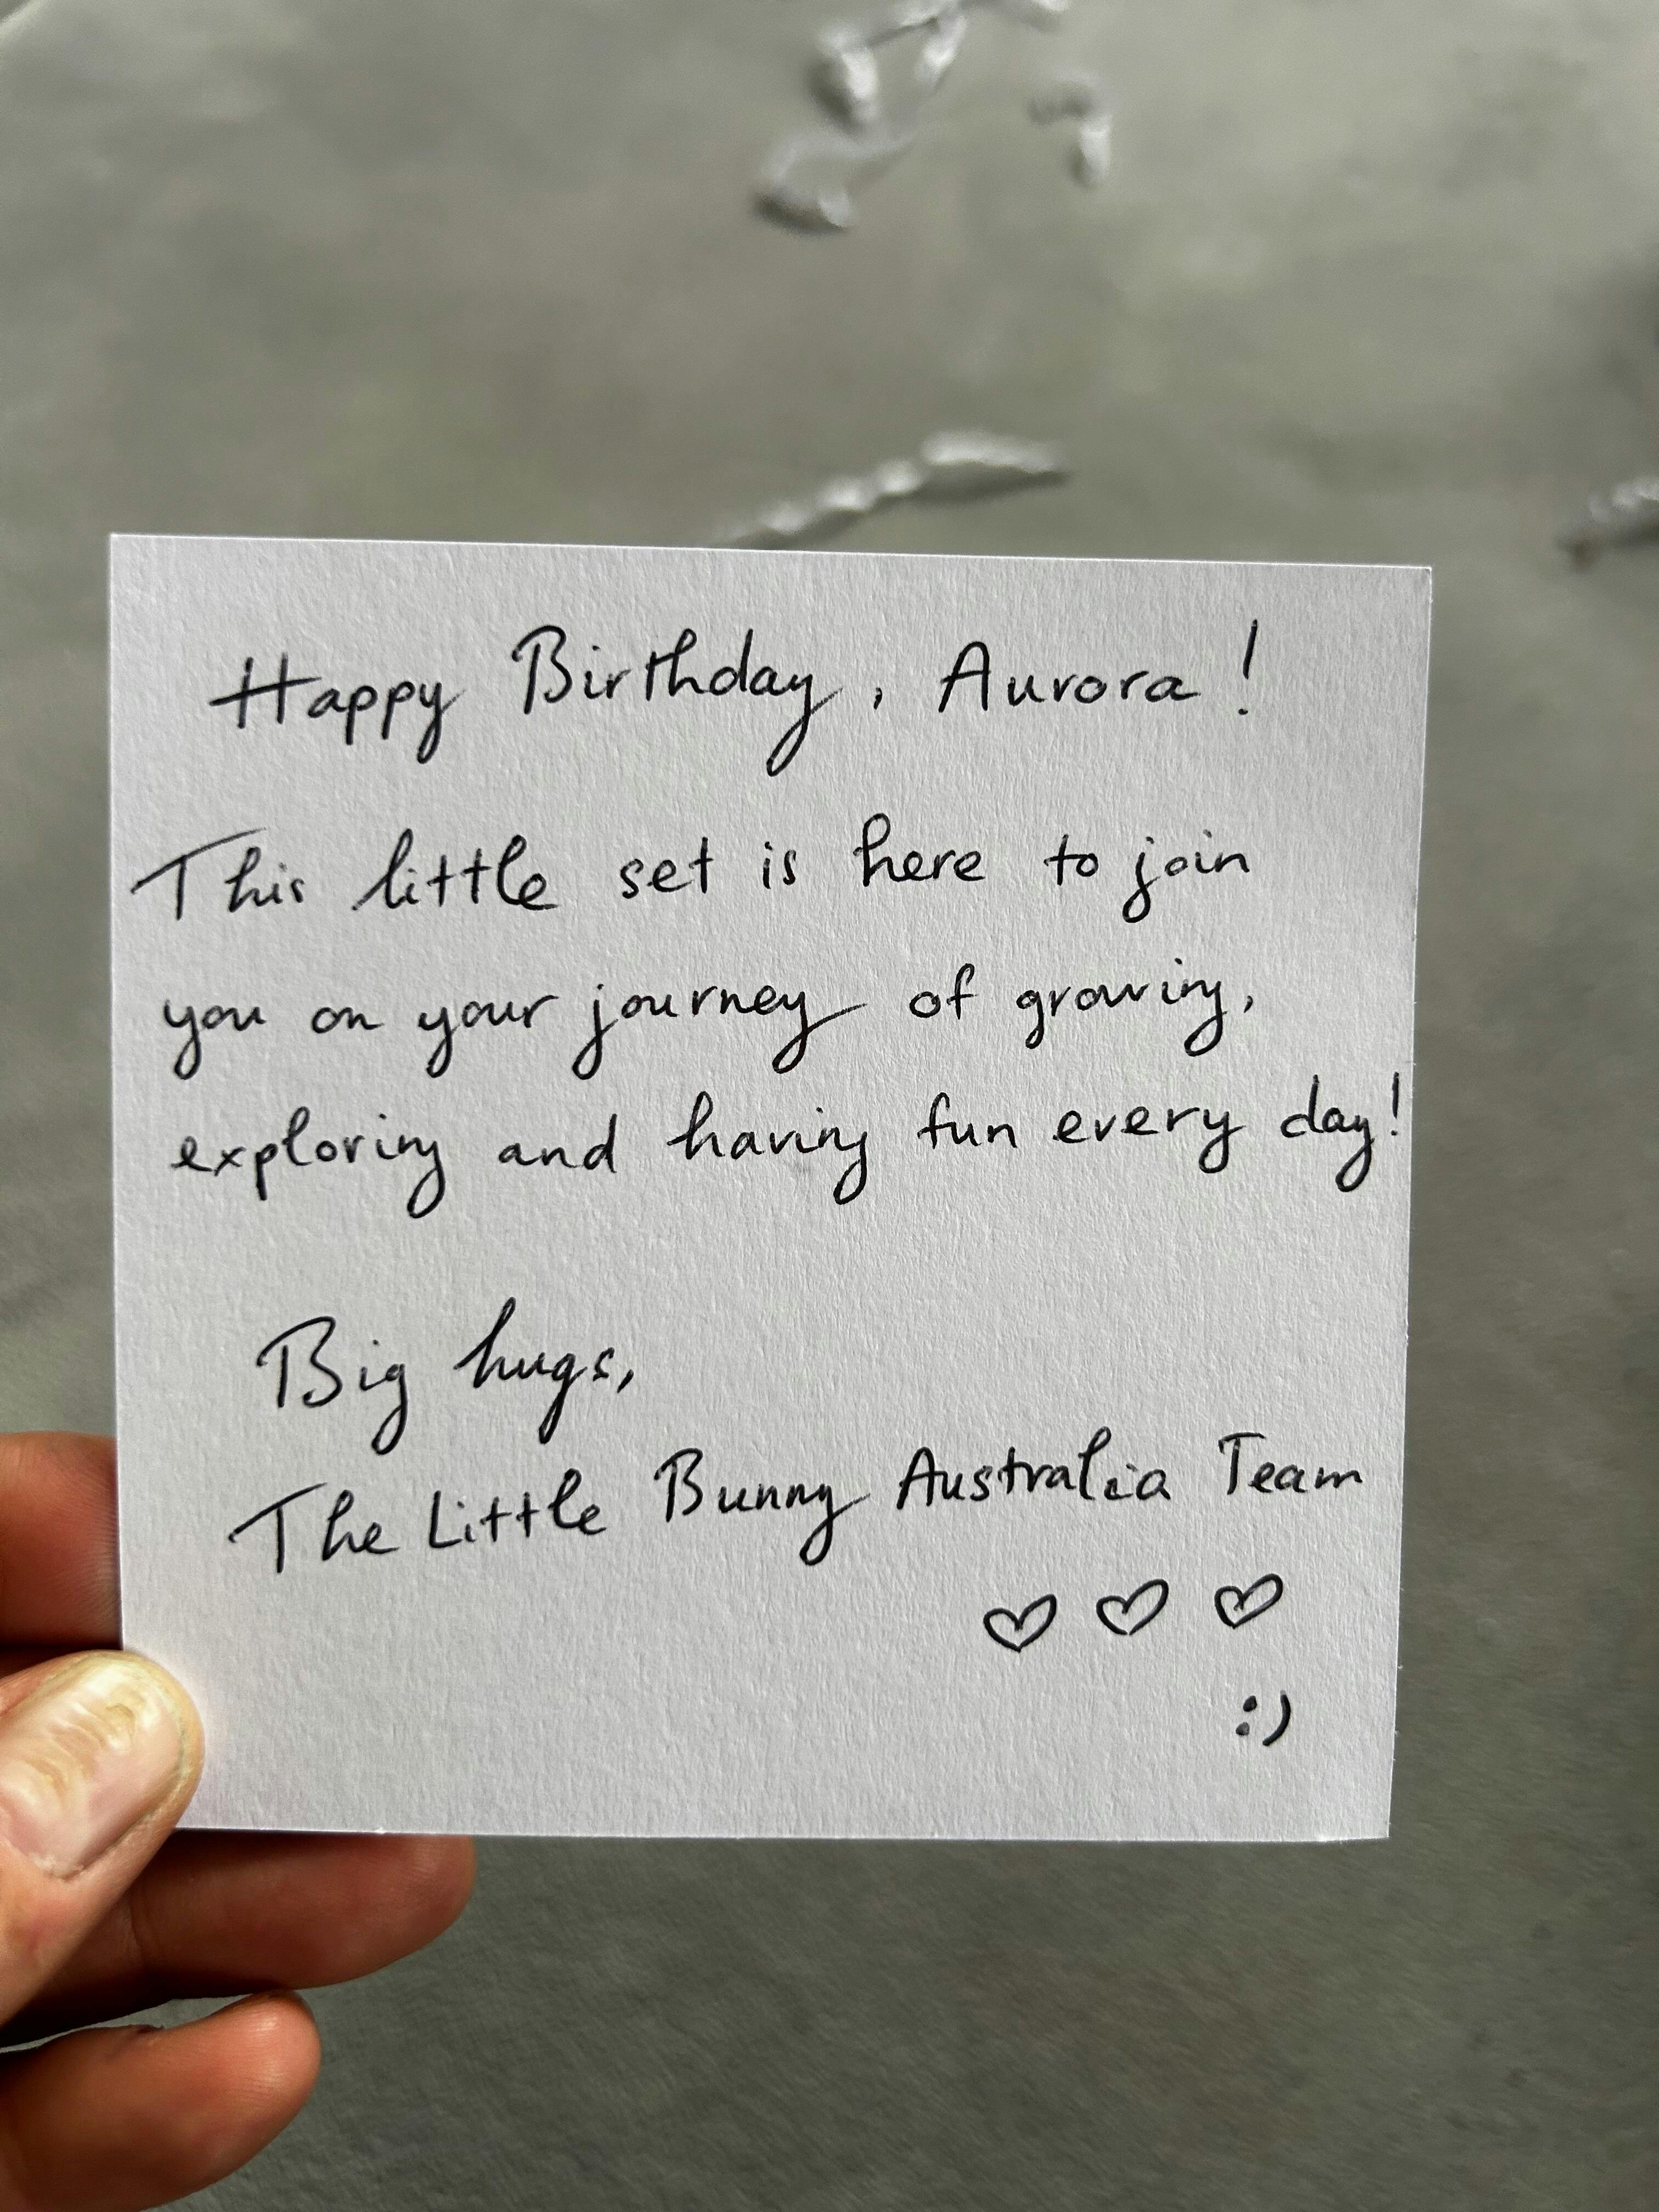 Happy Birthday, Aurora!
This little set is here to join
you on your journey of growing,
exploring and having fun every day!
Big hugs,
The Little Bunny Australia Team
♡ ♡ ♡
:)